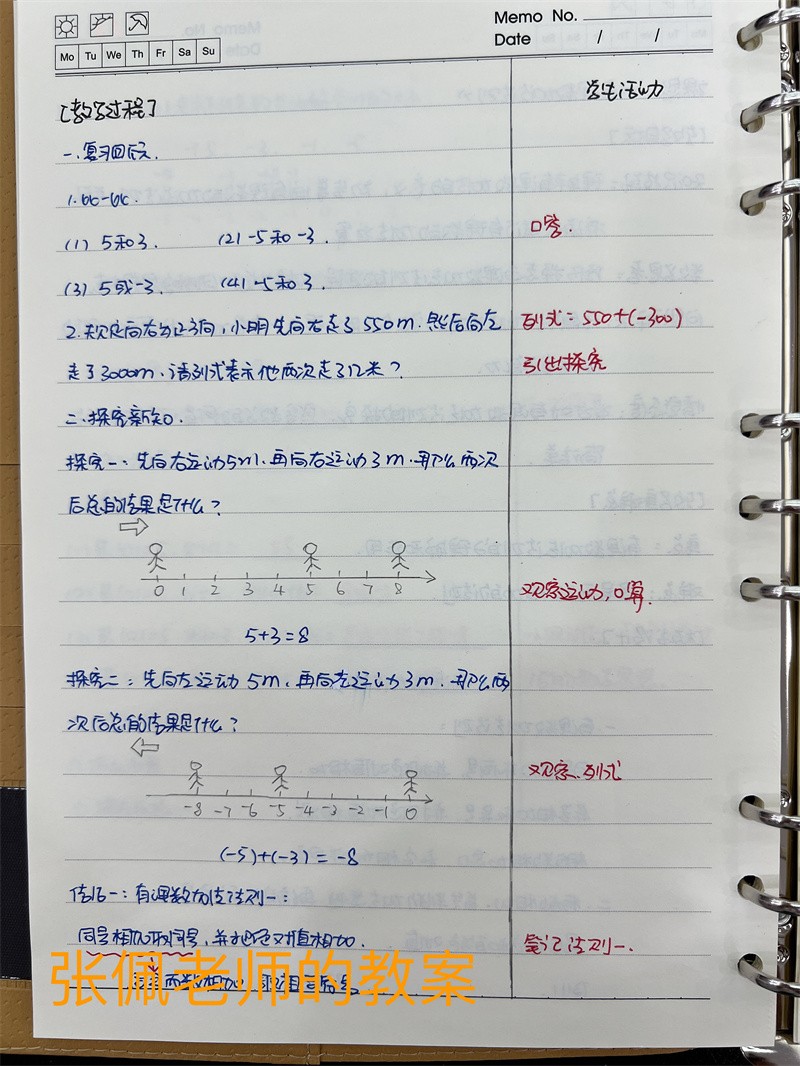 Memo No.
Date / /
Mo Tu We Th Fr Sa Su
学生活动
[教学过程]
一.复习回顾.
1.比一比.
(1) 5和3. (2) -5和-3.
口答.
(3) 5或-3. (4) -5和3.
2.规定向右为正方向,小明先向右走了550m.然后向左
列式:550+(-300)
走了300m.请列式表示他两次走了几米?
引出探究
二.探究新知.
探究一:先向右运动5m.再向右运动3m.那么两次
后总的结果是什么?
0 1 2 3 4 5 6 7 8
观察运动,口算.
5+3=8
探究二:先向左运动5m.再向左运动3m.那么两
次后总的结果是什么?
观察.列式
-8 -7 -6 -5 -4 -3 -2 -1 0
(-5)+(-3)=-8
结论一:有理数加法法则一:
同号相加取同号,并把绝对值相加.
笔记法则一.
张佩老师的教案